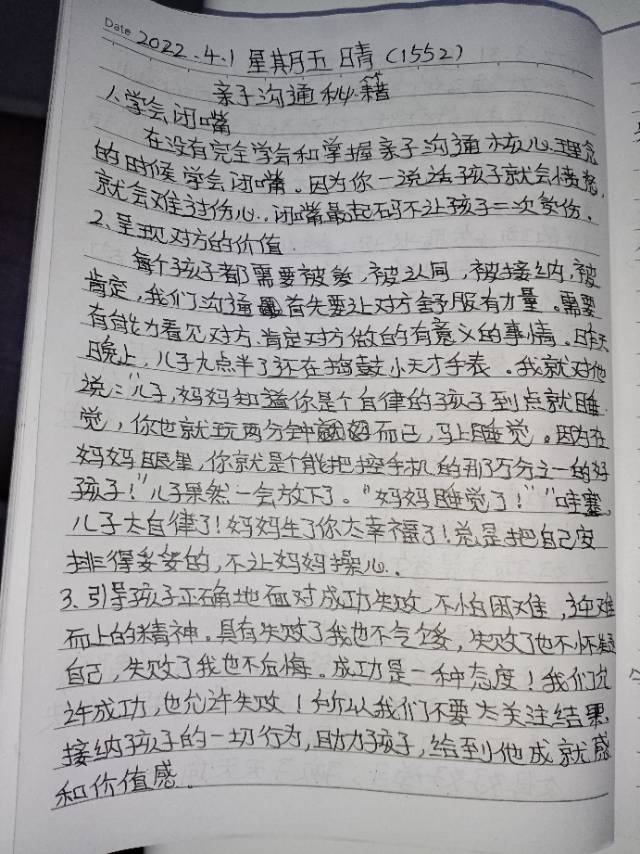 Date 2022.4.1 星期五 晴(1552)
亲子沟通秘籍
1、学会闭嘴
在没有完全学会和掌握亲子沟通核心理念
的时候学会闭嘴。因为你一说话孩子就会愤怒,
就会难过伤心..闭嘴最起码不让孩子二次受伤。
2、呈现对方的价值
每个孩子都需要被爱,被认同,被接纳,被
肯定,我们沟通首先要让对方舒服有力量。需要
有能力看见对方、肯定对方做的有意义的事情。昨天
晚上,儿子九点半了还在捣鼓小天才手表。我就对他
说:"儿子,妈妈知道你是个自律的孩子到点就睡
觉,你也就玩两分钟而已,马上睡觉。因为在
妈妈眼里,你就是个能把控手机的那万分之一的好
孩子!"儿子果然一会放下了。"妈妈睡觉了!""哇塞,
儿子太自律了!妈妈生了你太幸福了!总是把自己安
排得妥妥的,不让妈妈操心..
3.引导孩子正确地面对成功失败,不怕困难,迎难
而上的精神。具有失败了我也不气馁,失败了也不怀疑
自己,失败了我也不后悔。成功是一种态度!我们允
许成功,也允许失败!所以我们不要太关注结果,
接纳孩子的一切行为,助力孩子,给到他成就感
和价值感.